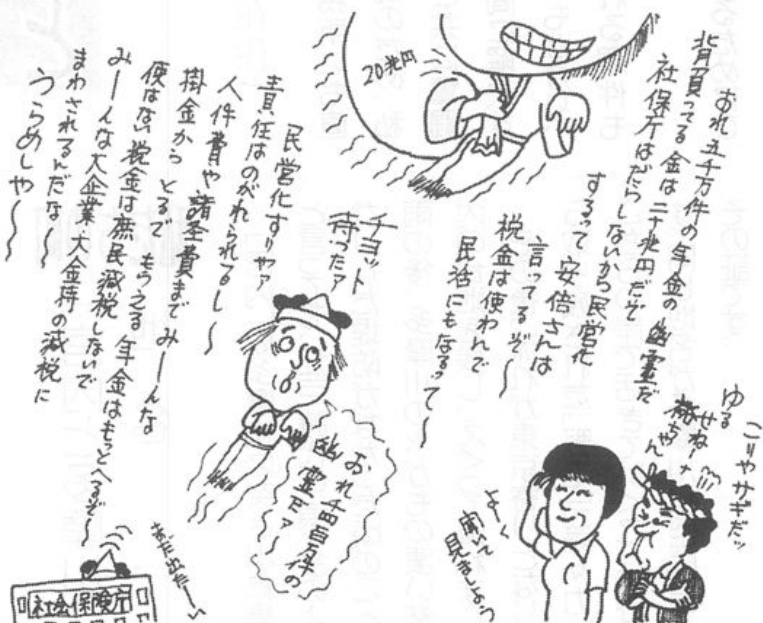 20兆円
おれ五千万件の年金の幽霊だ
背負ってる金は二十兆円だぞ
社保庁はだらしないから民営化
するって安倍さんは
言ってるぞ〜
税金は使わんで
民活にもなるって〜
こりゃサギだッ
ゆるせねー
ちゃん
よーく
聞いて
見ましょう
チョット
待ったァ
おれ千四百万件の
幽霊だァー
民営化すりゃァ
責任はのがれられるし〜
人件費や諸経費までみーんな
掛金からとるでもらえる年金はもっとへるぞ〜
使はない税金は庶民減税しないで
みーんな大企業大金持の減税に
まわされるんだな〜
うらめしや〜〜
また出た〜
社会保険庁